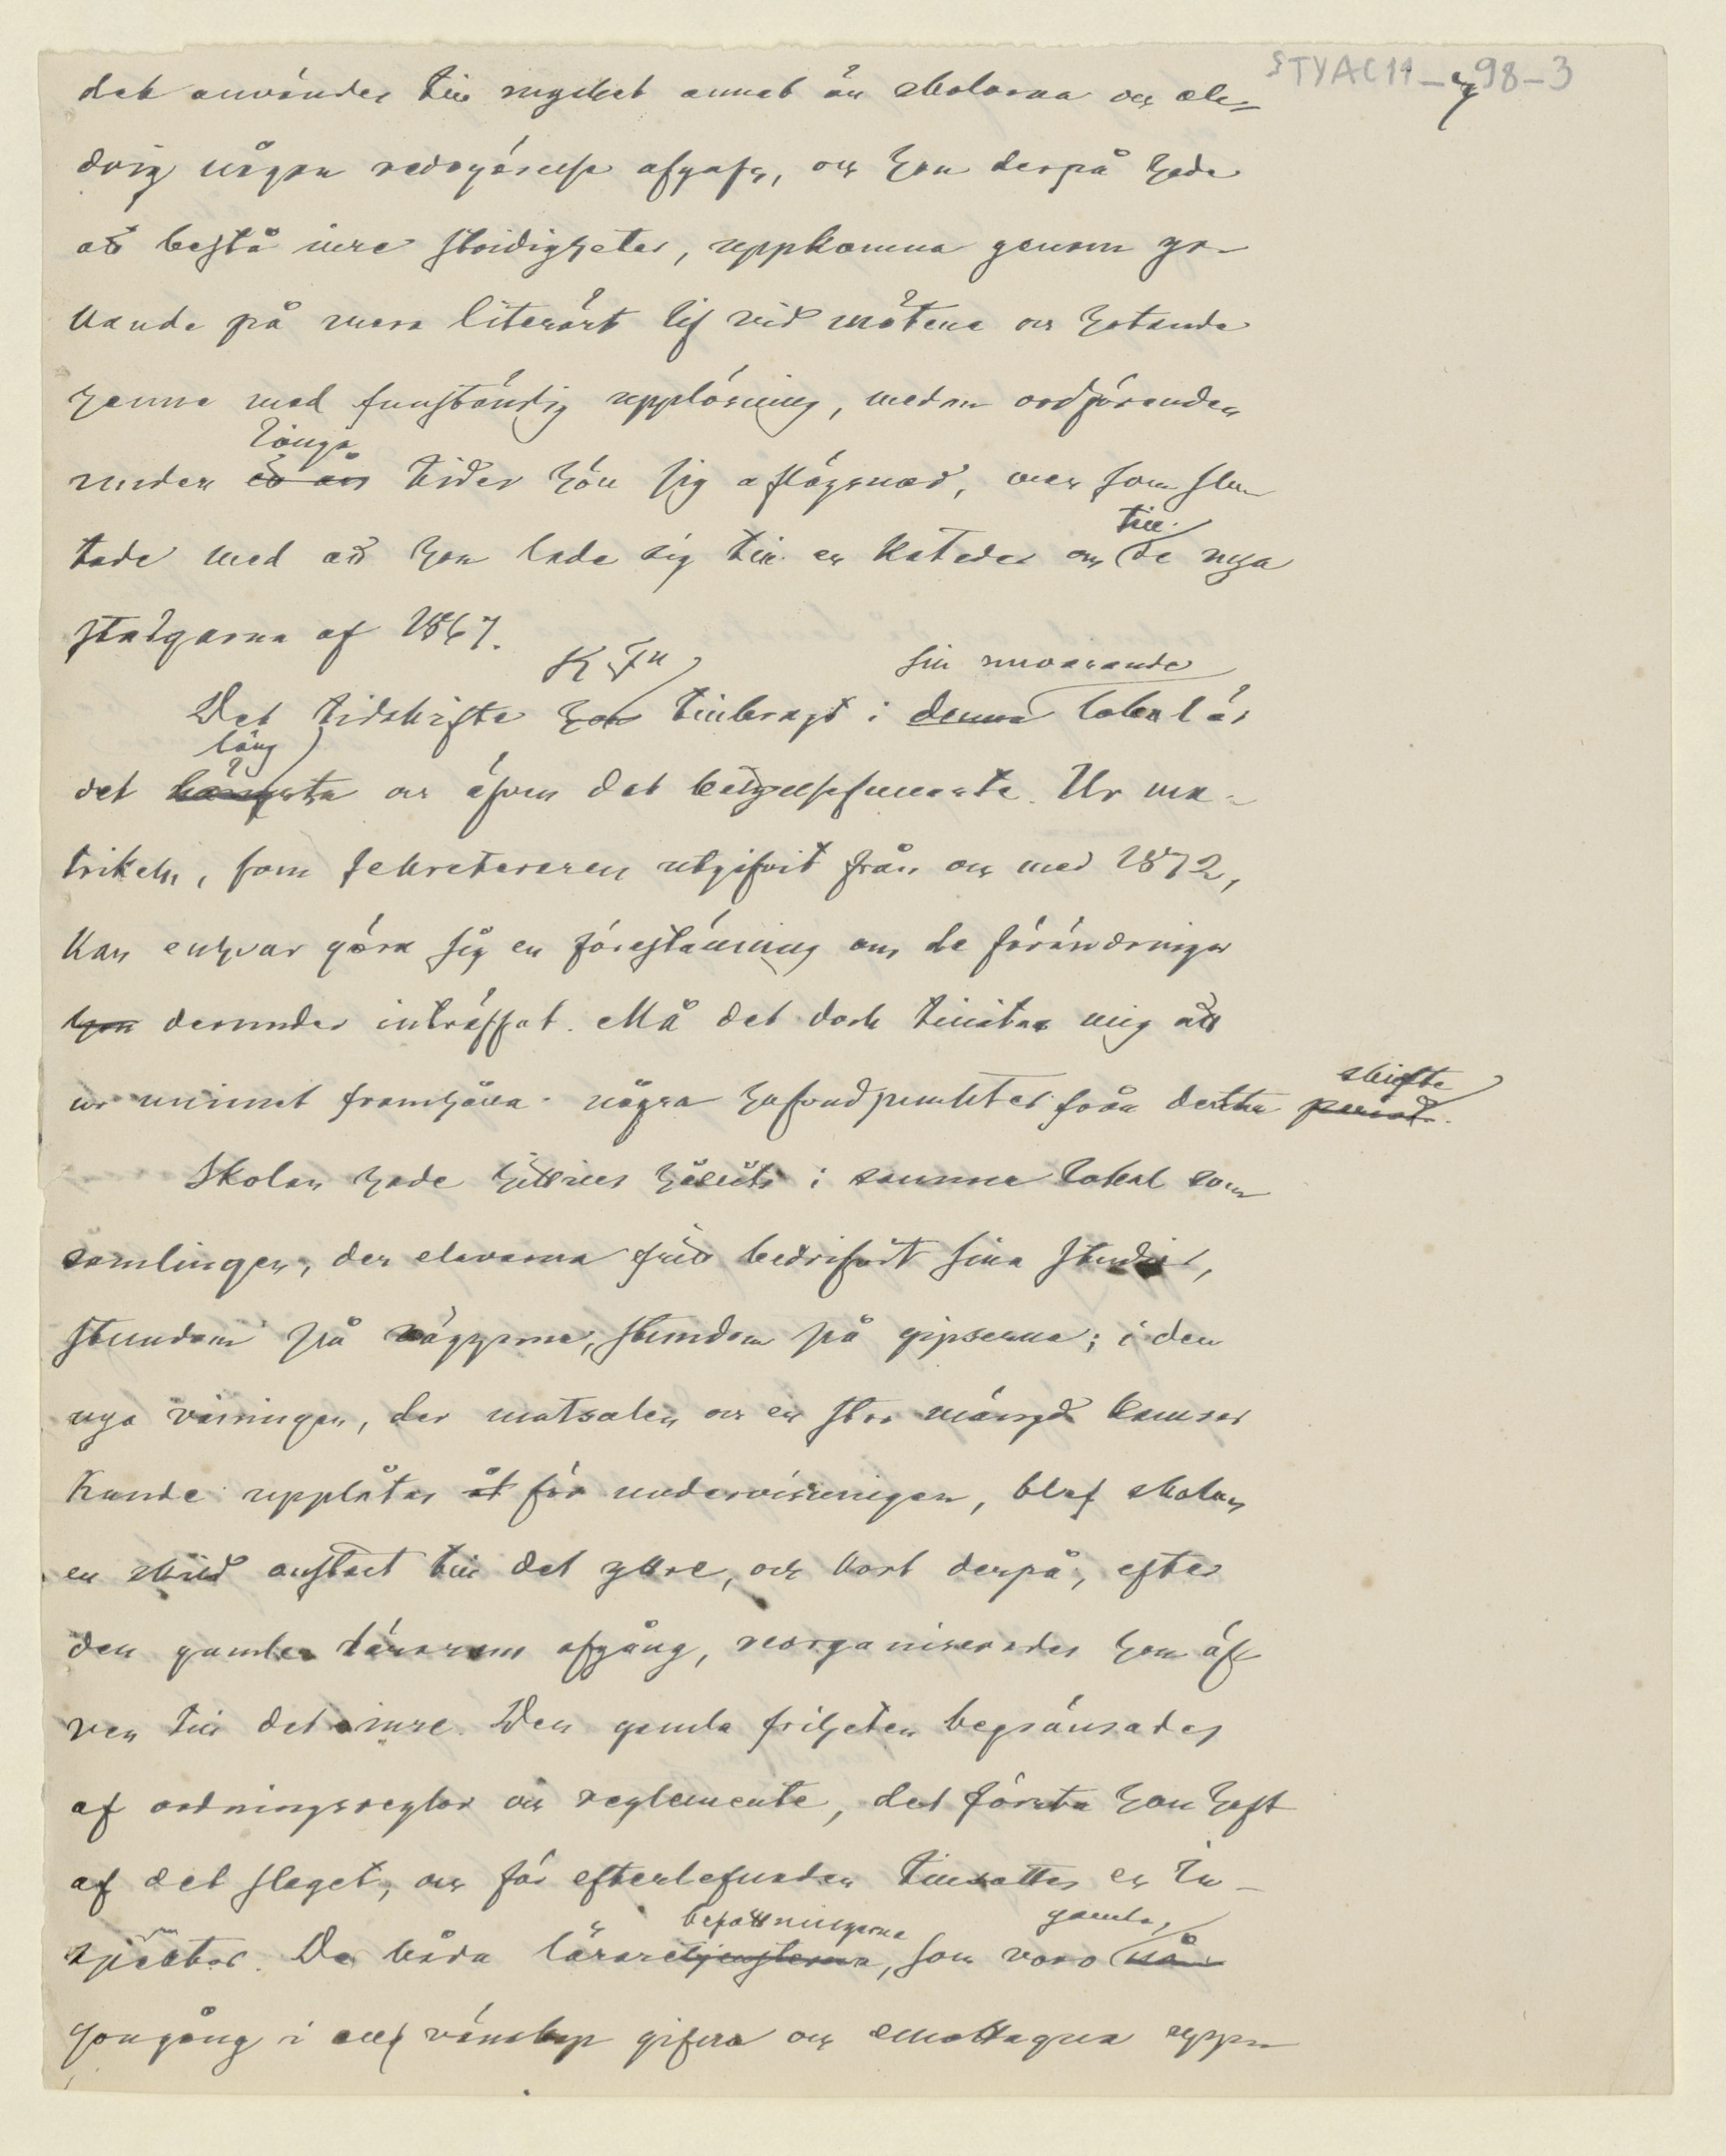 STYAC11_98-3
det användes till mycket annat än skolorna och al=
drig någon redogörelse afgafs, och hon derpå hade
att bestå inre stridigheter, uppkomna genom yr-
kande på mera literärt lif vid mötena och hotande
henne med fullständig upplösning, medan ordföranden
långa
under två års tider höll sig aflägsnad, men som slu-
till
tade med att hon lade sig till en Kateder och de nya
stadgarna af 1867.
K.Fn sin nuvarande
Det tidskifte hon tillbragt i denna lokal är
lång
det längsta och äfven det betydelsefullaste. Ur ma-
trikeln, som sekreteraren utgifvit från och med 1872,
kan enhvar göra sig en föreställning om de förändringar
hon derunder inträffat. Må det dock tillåtas mig att
skifte
ur minnet framhålla några hufvudpunkter från detta period.
Skolan hade hittills hållits i samma lokal som
samlingen, der eleverna fritt bedrifvit sina studier,
stundom på väggarna, stundom på gipserna; i den
nya våningen, der matsalen och en stor mängd kamrar
kunde upplåtas åt för undervisningen, blef skolan
en skild anstalt till det yttre, och kort derpå, efter
den gamla lärarens afgång, reorganiserades hon äf-
ven till det inre. Den gamla friheten begränsades
af ordningsreglor och reglemente, det första hon haft
af det slaget, och för efterlefnaden tillsattes en In-
befattningarna gamla,
spektor. De båda läraretjensterna, som voro nå-
hongång i all vänskap gifna och emottagna uppe